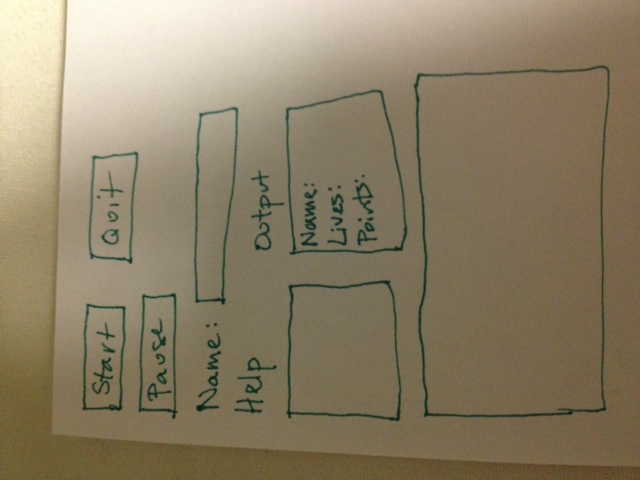 Start Quit
Pause
Name:
Help Output
Name:
Lives:
Points: